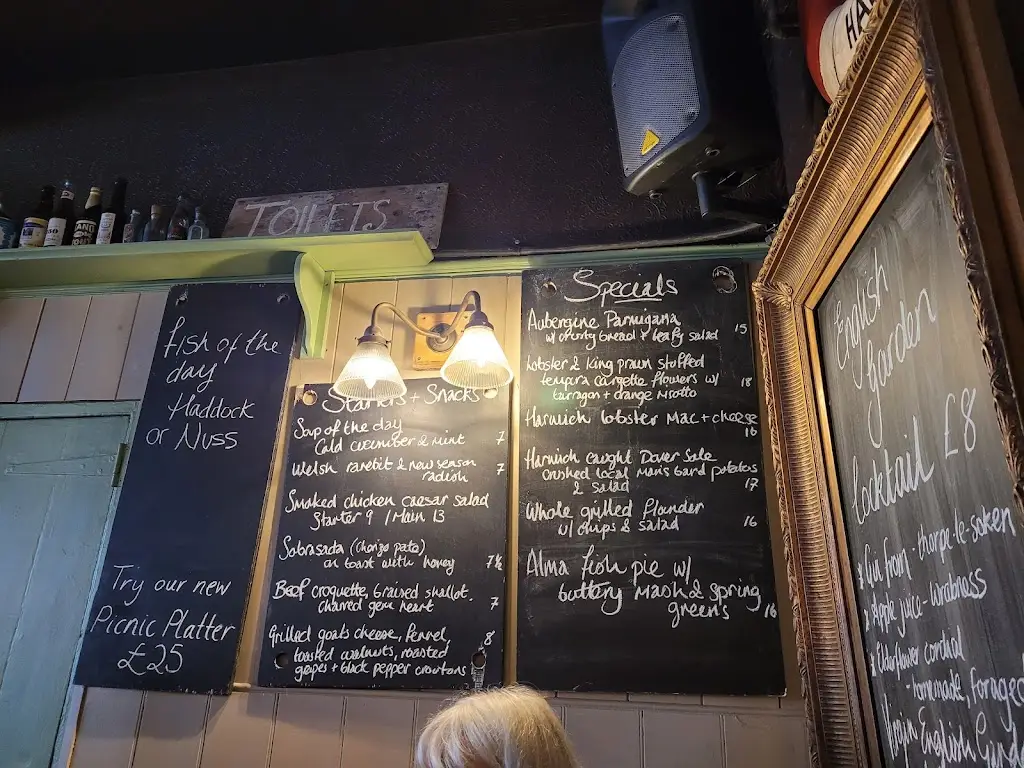 TOILETS
HA
Fish of the
day
Haddock
or Nuss
Try our new
Picnic Platter
£25
Starters + Snacks
Soup of the day
Cold cucumber & mint 7
Welsh rarebit & new season
radish 7
Smoked chicken caesar salad
Starter 9 / Main 13
Sobrasada (chorizo pate)
on toast with honey 7½
Beef croquette, braised shallot,
charred gem heart 7
Grilled goats cheese, fennel, 8
toasted walnuts, roasted
grapes + black pepper croutons
Specials
Aubergine Parmigana
w/ crunty bread + leafy salad 15
Lobster & king prawn stuffed
tempura corgette flowers w/ 18
tarragon + orange risotto
Harwich lobster Mac + cheese
16
Harwich caught Dover Sole
crushed local Maris Bard potatoes
& salad 17
Whole grilled Flounder
w/ chips & salad 16
Alma fish pie w/
buttery mash & spring
greens 16
English
Garden
Cocktail £8
Gin from - thorpe-le-soken
Apple juice - Wrabness
Elderflower cordial
- homemade, foraged
Virgin English Gard